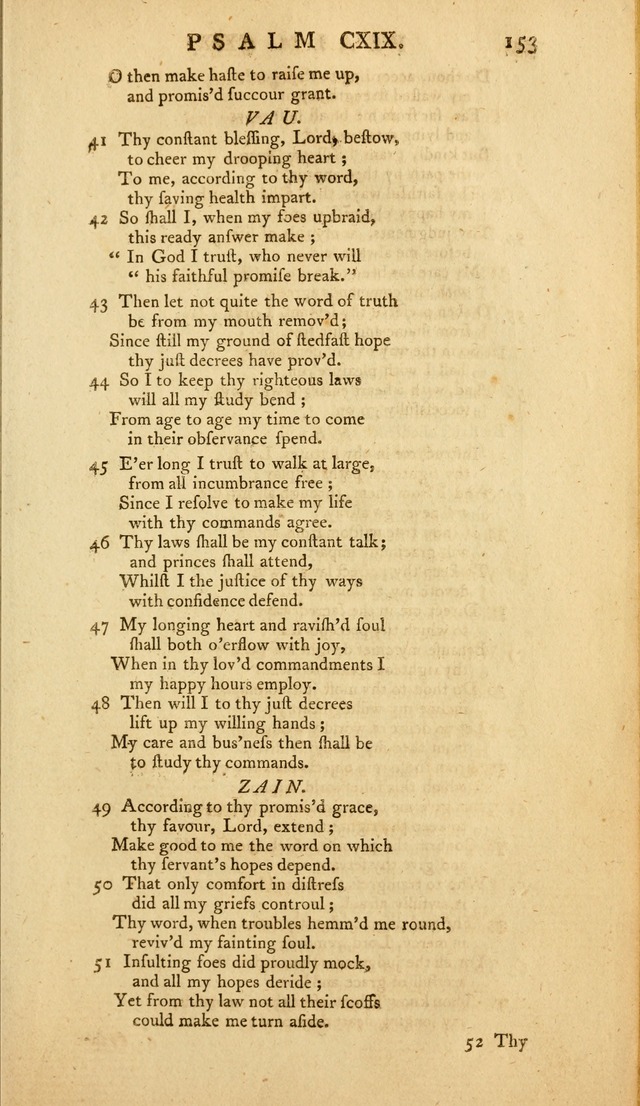 PSALM CXIX. 153
O then make haſte to raiſe me up,
and promis'd ſuccour grant.
VAU.
41 Thy conſtant bleſſing, Lord, beſtow,
to cheer my drooping heart ;
To me, according to thy word,
thy ſaving health impart.
42 So ſhall I, when my foes upbraid,
this ready anſwer make ;
“ In God I truſt, who never will
“ his faithful promiſe break.”
43 Then let not quite the word of truth
be from my mouth remov'd;
Since ſtill my ground of ſtedfaſt hope
thy juſt decrees have prov'd.
44 So I to keep thy righteous laws
will all my ſtudy bend ;
From age to age my time to come
in their obſervance ſpend.
45 E'er long I truſt to walk at large,
from all incumbrance free ;
Since I reſolve to make my life
with thy commands agree.
46 Thy laws ſhall be my conſtant talk;
and princes ſhall attend,
Whilſt I the juſtice of thy ways
with confidence defend.
47 My longing heart and raviſh'd ſoul
ſhall both o'erflow with joy,
When in thy lov'd commandments I
my happy hours employ.
48 Then will I to thy juſt decrees
lift up my willing hands ;
My care and bus'neſs then ſhall be
to ſtudy thy commands.
ZAIN.
49 According to thy promis'd grace,
thy favour, Lord, extend ;
Make good to me the word on which
thy ſervant's hopes depend.
50 That only comfort in diſtreſs
did all my griefs controul ;
Thy word, when troubles hemm'd me round,
reviv'd my fainting ſoul.
51 Inſulting foes did proudly mock,
and all my hopes deride ;
Yet from thy law not all their ſcoffs
could make me turn aſide.
52 Thy